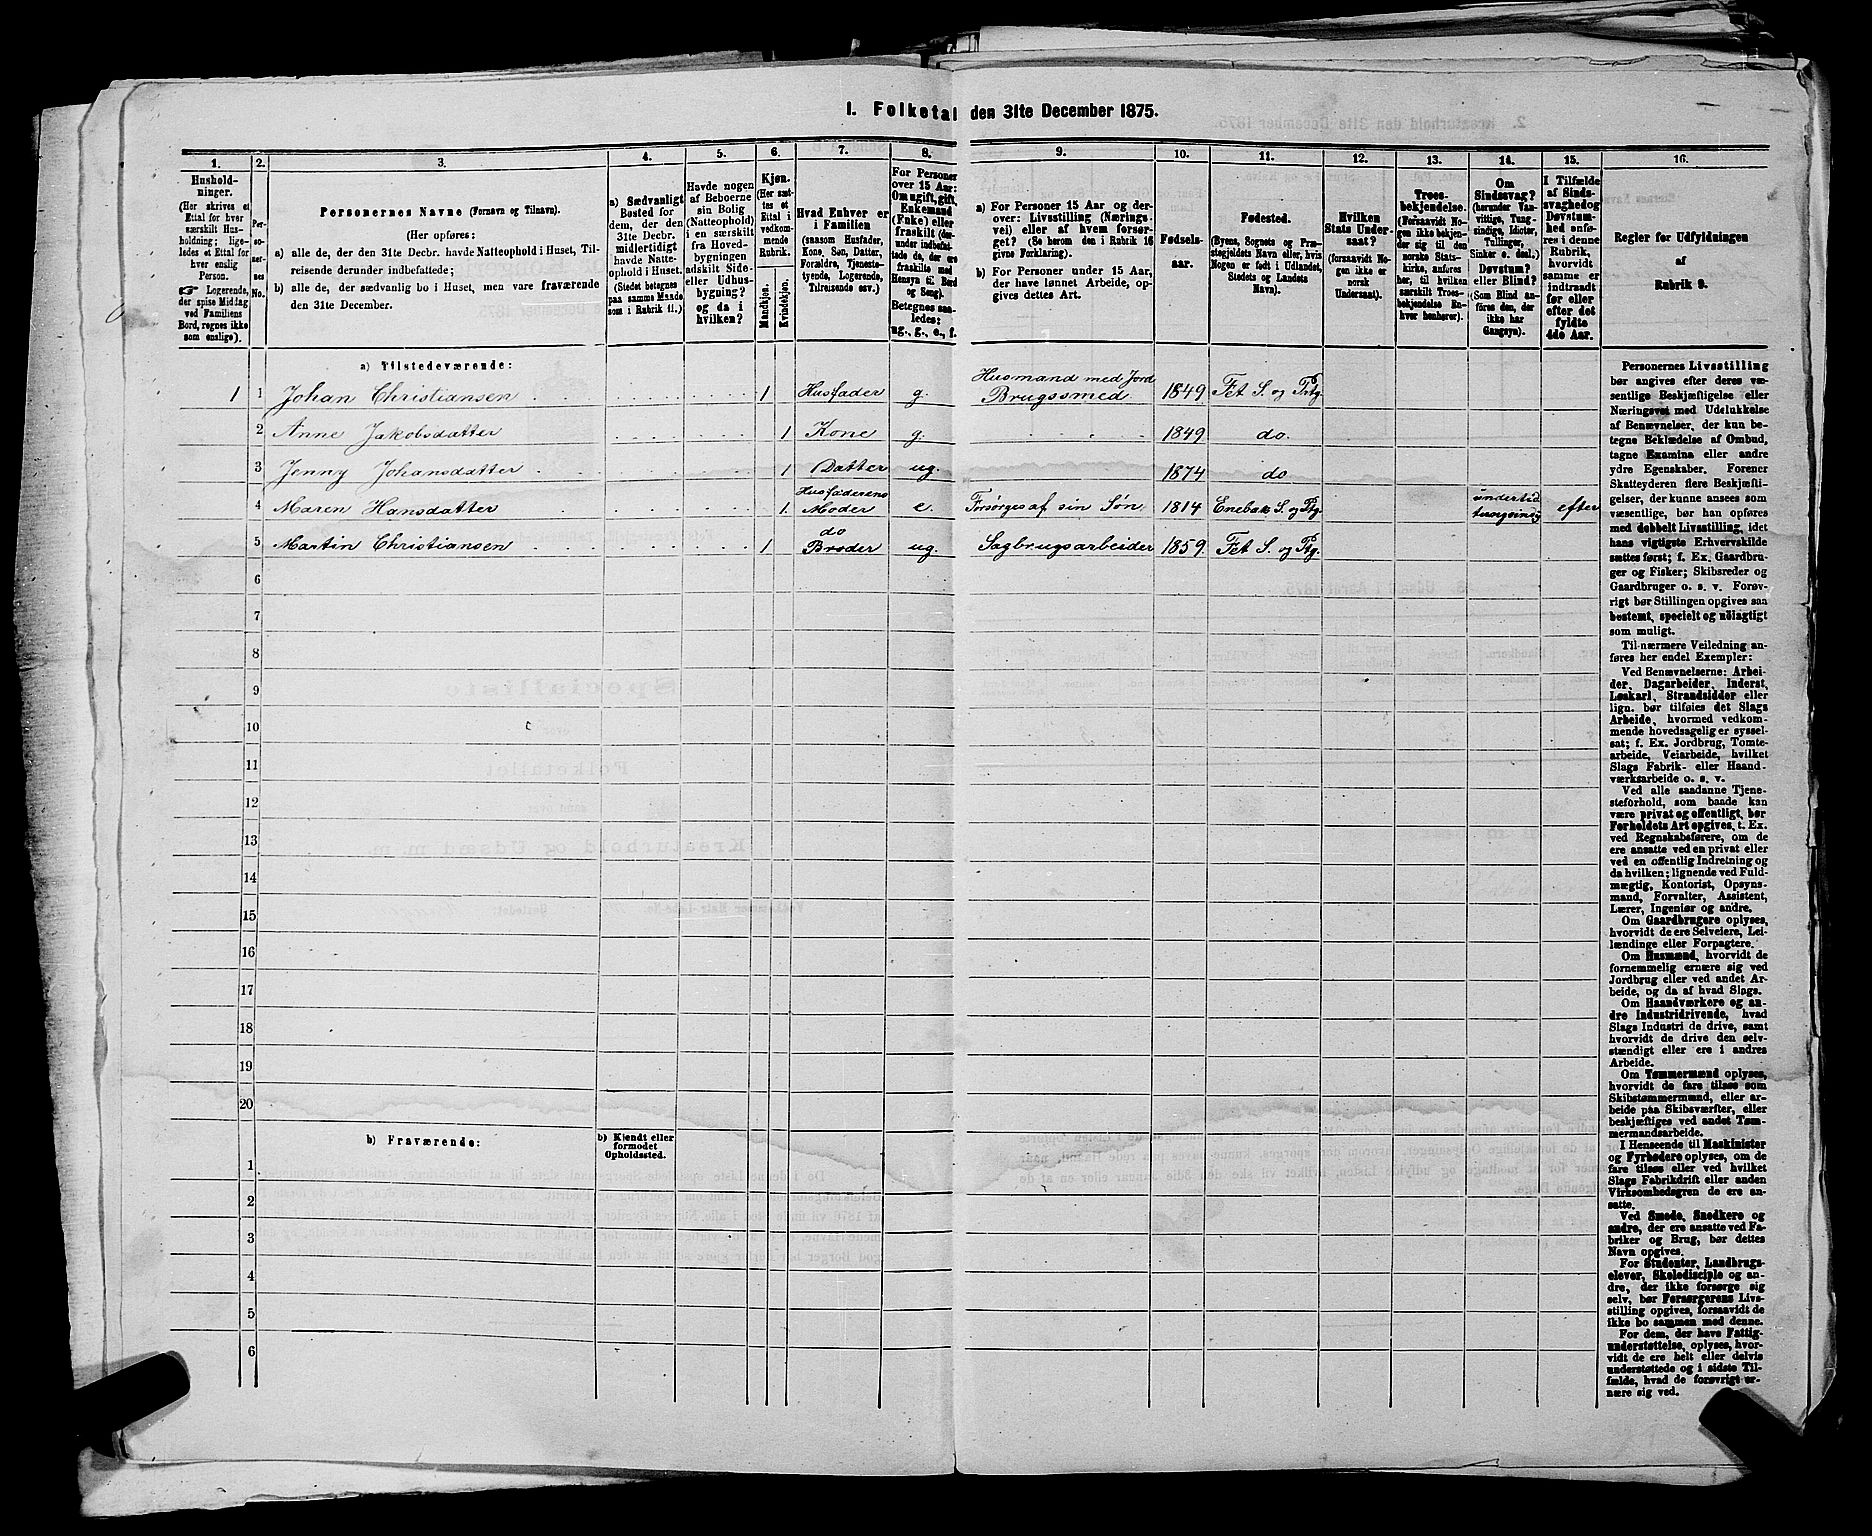 1. Folketal den 31te December 1875.
1. 2. 3. 4. 5. 6. 7. 8. 9. 10. 11. 12. 13. 14. 15. 16.
Hushold-
ninger.
(Her skrives et
Ettal for hver
særskilt Hus-
holdning; lige-
ledes et Ettal for
hver enslig
Person.
☞ Logerende,
der spise Middag
ved Familiens
Bord, regnes ikke
som enslige).
Per-
so-
ner-
nes
No.
Personernes Navne (Fornavn og Tilnavn).
(Her opføres:
a) alle de, der den 31te Decbr. havde Natteophold i Huset, Til-
reisende derunder indbefattede;
b) alle de, der sædvanlig bo i Huset, men vare fraværende
den 31te December.
a) Sædvanligt
Bosted for
dem, der den
31te Decbr.
midlertidigt
havde Natte-
ophold i Huset.
(Stedet betegnes
paa samme Maade
som i Rubrik 11.)
Havde nogen
af Beboerne
sin Bolig
(Natteophold)
i en særskilt
fra Hoved-
bygningen
adskilt Side-
eller Udhus-
bygning?
og da i
hvilken?
Kjøn.
(Her sæt-
tes et
Ettal i
vedkom-
mende
Rubrik.
Mandkjøn.
Kvindekjøn.
Hvad Enhver er
i Familien
(saasom Husfader,
Kone, Søn, Datter,
Forældre, Tjeneste-
tyende, Logerende,
Tilreisende osv.)
For Personer
over 15 Aar:
Om ugift, gift,
Enkemand
(Enke) eller
fraskilt (der-
under indbefat-
tede de, der ere
fraskilte med
Hensyn til Bord
og Seng).
Betegnes saa-
ledes:
ug., g., e., f.
a) For Personer 15 Aar og der-
over: Livsstilling (Nærings-
vei) eller af hvem forsør-
get? (Se herom den i Rubrik 16
givne Forklaring).
b) For Personer under 15 Aar,
der have lønnet Arbeide, op-
gives dettes Art.
Fødsels-
aar.
Fødested.
(Byens, Sognets og Præ-
stegjeldets Navn eller, hvis
Nogen er født i Udlandet,
Stedets og Landets
Navn).
Hvilken
Stats Under-
saat?
(forsaavidt No-
gen ikke er
norsk
Undersaat).
Troes-
bekjendelse.
(Forsaavidt No-
gen ikke bekjen-
der sig til den
norske Stats-
kirke, anføres
her, til hvilken
særskilt Troes-
bekjendelse En-
hver henhører).
Om
Sindssvag?
(herunder Van-
vittige, Tung-
sindige, Idioter,
Tullinger,
Sinker o. desl.)
Døvstum?
eller Blind?
(Som Blind an-
føres den, der
ikke har
Gangsyn).
I Tilfælde
af Sinds-
svaghed og
Døvstum-
hed anfø-
res i denne
Rubrik,
hvorvidt
samme er
indtraadt
før eller
efter det
fyldte
4de Aar.
Regler for Udfyldningen
af
Rubrik 9.
a) Tilstedeværende:
1 1 Johan Christiansen 1 Husfader g. Husmand med Jord Brugssmed 1849 Fet S. og Prtg.
2 Anne Jakobsdatter 1 Kone g. 1849 do.
3 Jenny Johansdatter 1 Datter ug. 1874 do
4 Maren Hansdatter 1 Husfaderens Moder e. Forsørges af sin Søn 1814 Enebak S. og Ptg. undertid tungsindig efter
5 Martin Christiansen 1 do Broder ug. Sagbrugsarbeider 1859 Fet S. og Ptg.
6
7
8
9
10
11
12
13
14
15
16
17
18
19
20
b) Fraværende:
b) Kjendt eller
formodet
Opholdssted.
1
2
3
4
5
6
Personernes Livsstilling
bør angives efter deres væ-
sentlige Beskjæftigelse eller
Næringsvei med Udelukkelse
af Benævnelser, der kun be-
tegne Beklædelse af Ombud,
tagne Examina eller andre
ydre Egenskaber. Forener
Skatteyderen flere Beskjæfti-
gelser, der kunne ansees som
væsentlige, bør han opføres
med dobbelt Livsstilling, idet
hans vigtigste Erhvervskilde
sættes først; f. Ex. Gaardbru-
ger og Fisker; Skibsreder og
Gaardbruger o. s. v. Forøv-
rigt bør Stillingen opgives saa
bestemt, specielt og nöiagtigt
som muligt.
Til nærmere Veiledning an-
føres her endel Exempler:
Ved Benævnelserne: Arbei-
der, Dagarbeider, Inderst,
Løskarl, Strandsidder eller
lign. bør tilføies det Slags
Arbeide, hvormed vedkom-
mende hovedsagelig er syssel-
sat; f. Ex. Jordbrug, Tomte-
arbeide, Veiarbeide, hvilket
Slags Fabrik- eller Haand-
værksarbeide o. s. v.
Ved alle saadanne Tjene-
steforhold, som baade kan
være privat og offentligt, bør
Forholdets Art opgives, t. Ex.
ved Regnskabsførere, om de
ere ansatte ved en privat eller
ved en offentlig Indretning og
da hvilken; lignende ved Fuld-
mægtig, Kontorist, Opsyns-
mand, Forvalter, Assistent,
Lærer, Ingeniør og andre.
Om Gaardbrugere oplyses,
hvorvidt de ere Selveiere, Lei-
lændinge eller Forpagtere.
Om Husmænd, hvorvidt de
fornemmelig ernære sig ved
Jordbrug eller ved andet Ar-
beide, og da af hvad Slags.
Om Haandværkere og an-
dre Industridrivende, hvad
Slags Industri de drive, samt
hvorvidt de drive den selv-
stændigt eller ere i andres
Arbeide.
Om Tømmermænd oplyses,
hvorvidt de fare tilsøs som
Skibstømmermænd, eller ar-
beide paa Skibsværfter, eller
beskjæftiges ved andet Tøm-
mermandsarbeide.
I Henseende til Maskinister
og Fyrbødere oplyses, om de
fare tilsøs eller ved hvilket
Slags Fabrikdrift eller anden
Virksomhedsgren de ere an-
satte.
Ved Smede, Snedkere og
andre, der ere ansatte ved Fa-
briker og Brug, bør dettes
Navn opgives.
For Studenter, Landbrugs-
elever, Skoledisciple og an-
dre, der ikke forsørge sig
selv, bør Forsørgerens Livs-
stilling opgives, forsaavidt de
ikke bo sammen med denne.
For dem, der have Fattig-
understøttelse, oplyses, hvor-
vidt de ere helt eller delvis
understøttede og i sidste Til-
fælde, hvad de forøvrigt er-
nære sig ved.